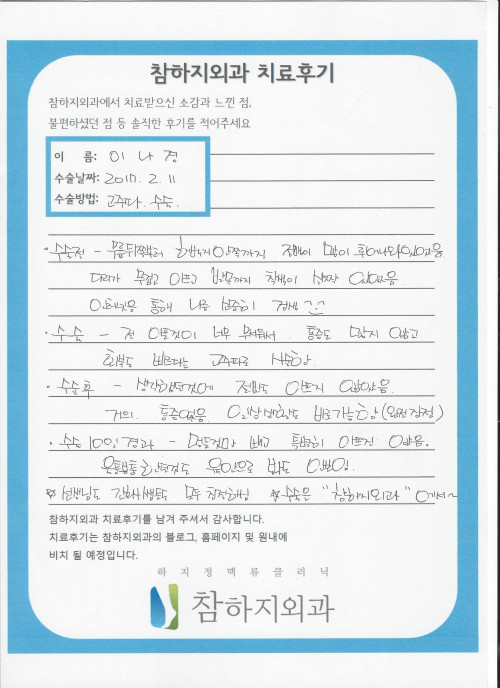 참하지외과 치료후기
참하지외과에서 치료받으신 소감과 느낀 점,
불편하셨던 점 등 솔직한 후기를 적어주세요
이 름: 이 나 경
수술날짜: 2017. 2. 11
수술방법: 고주파. 수술.
· 수술전 - 무릎뒤쪽부터 허벅지 안쪽까지 정맥이 많이 튀어나와있었음
다리가 무겁고 아프고 발끝까지 찾아 통해 나름
· 수술 - 전 아픈것이 너무 무서워서 통증도 많지 않고
회복도 빠르다는 고주파로 시술함.
· 수술후 - 생각했던것에 절반도 아프지 않았음.
거의. 통증없음. 일상생활도 바로가능함 (완전 강점)
· 수술 10일 경과 - 멍든것만 빼고 특별히 아프진 않음.
울퉁불퉁 하던것도 육안으로 봐도 안보임.
☆ 선생님도 간호사분들도 모두 친절하심 ☆ 수술은 "참하지외과" 에서~
참하지외과 치료후기를 남겨 주셔서 감사합니다.
치료후기는 참하지외과의 블로그, 홈페이지 및 원내에
비치 될 예정입니다.
하 지 정 맥 류 클 리 닉
참하지외과